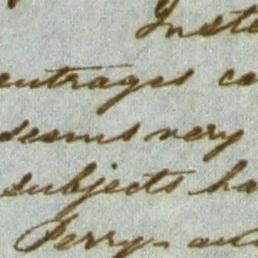 Inste
outrages co
seems very
subjects ha
Perry - and